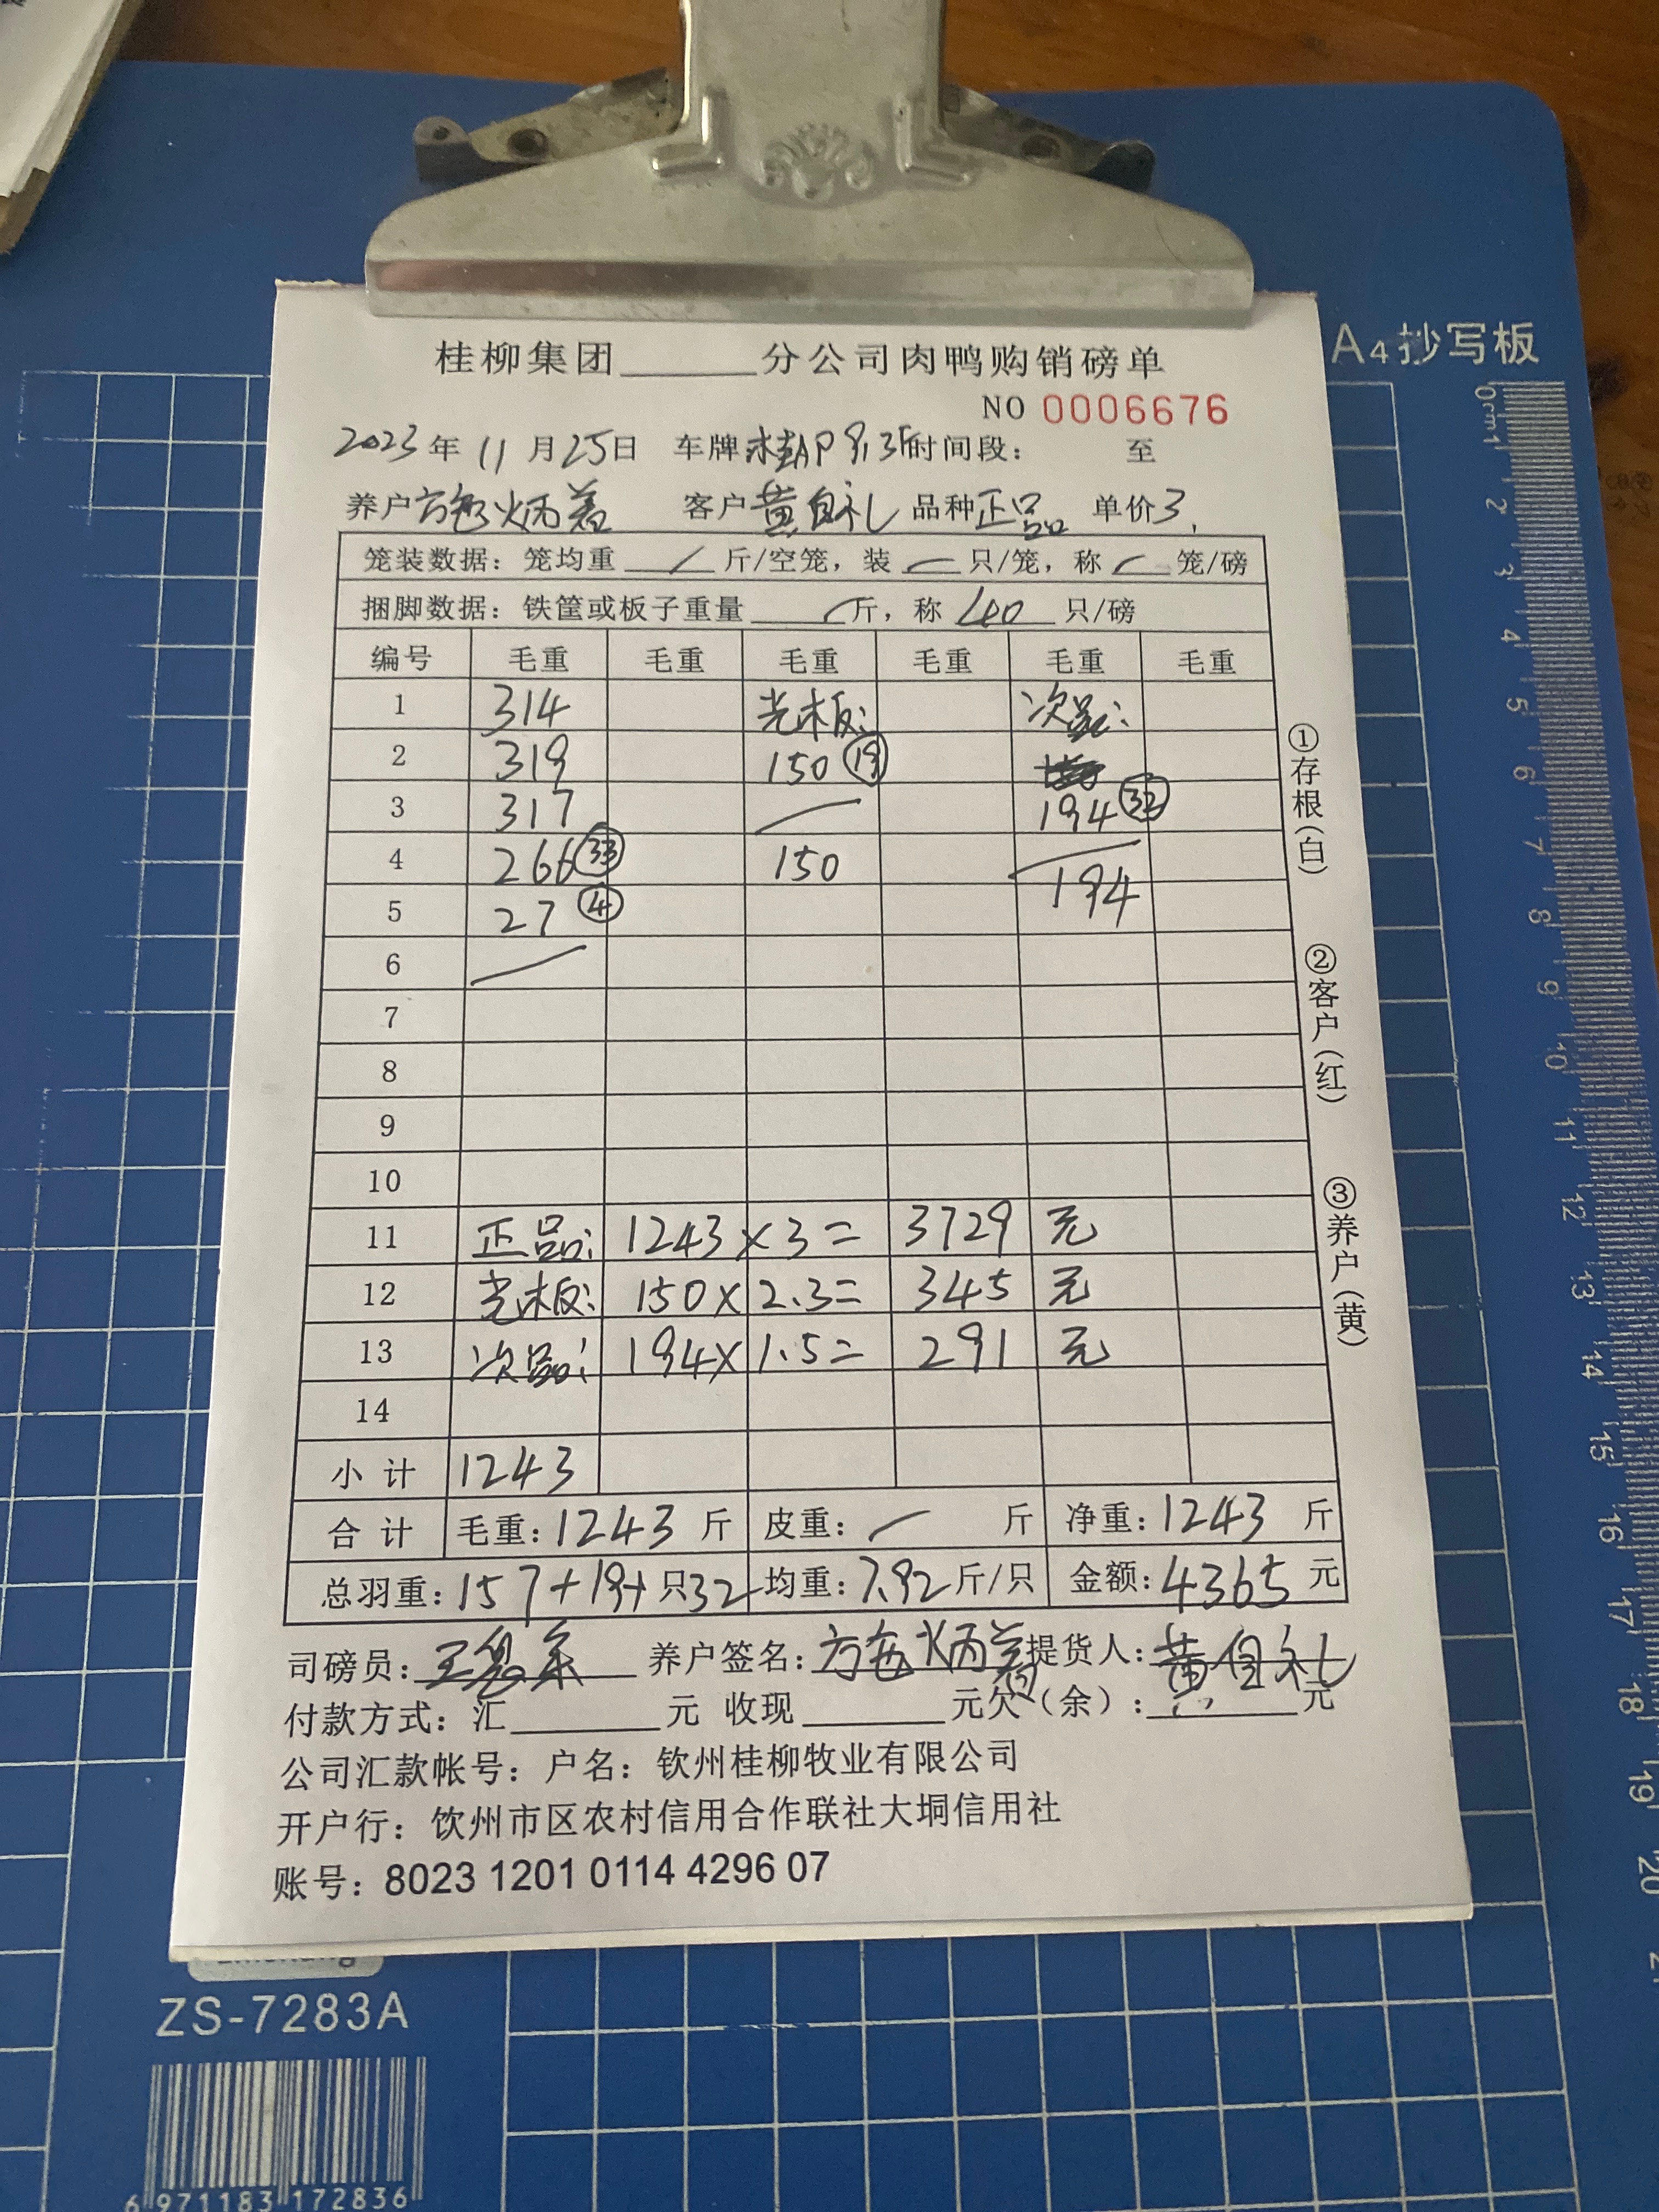 A4抄写板
桂柳集团______分公司肉鸭购销磅单
NO 0006676
2023年11月25日 车牌桂AP 时间段： 至
养户方 炳 客户黄自礼 品种正品 单价3
笼装数据：笼均重 / 斤/空笼，装 / 只/笼，称 / 笼/磅
捆脚数据：铁筐或板子重量 / 斤，称 40 只/磅
编号 毛重 毛重 毛重 毛重 毛重 毛重
1 314 光板： 次品：
2 319 150 ⑲
3 317 194 ㉜
4 266 ㉝ 150
5 27 ④ 194
6
7
8
9
10
11 正品： 1243×3= 3729 元
12 光板： 150×2.3= 345 元
13 次品： 194×1.5= 291 元
14
小计 1243
合计 毛重：1243 斤 皮重： / 斤 净重：1243 斤
总羽重：157+19+只32 均重：7.92斤/只 金额：4365 元
司磅员：王 养户签名：方 炳 提货人：黄自礼
付款方式：汇______元 收现______元欠（余）：______元
公司汇款帐号：户名：钦州桂柳牧业有限公司
开户行：钦州市区农村信用合作联社大垌信用社
账号：8023 1201 0114 4296 07
①存根（白）
②客户（红）
③养户（黄）
0cm1 2 3 4 5 6 7 8 9 10 11 12 13 14 15 16 17 18 19 20
ZS-7283A
6 971183 172836